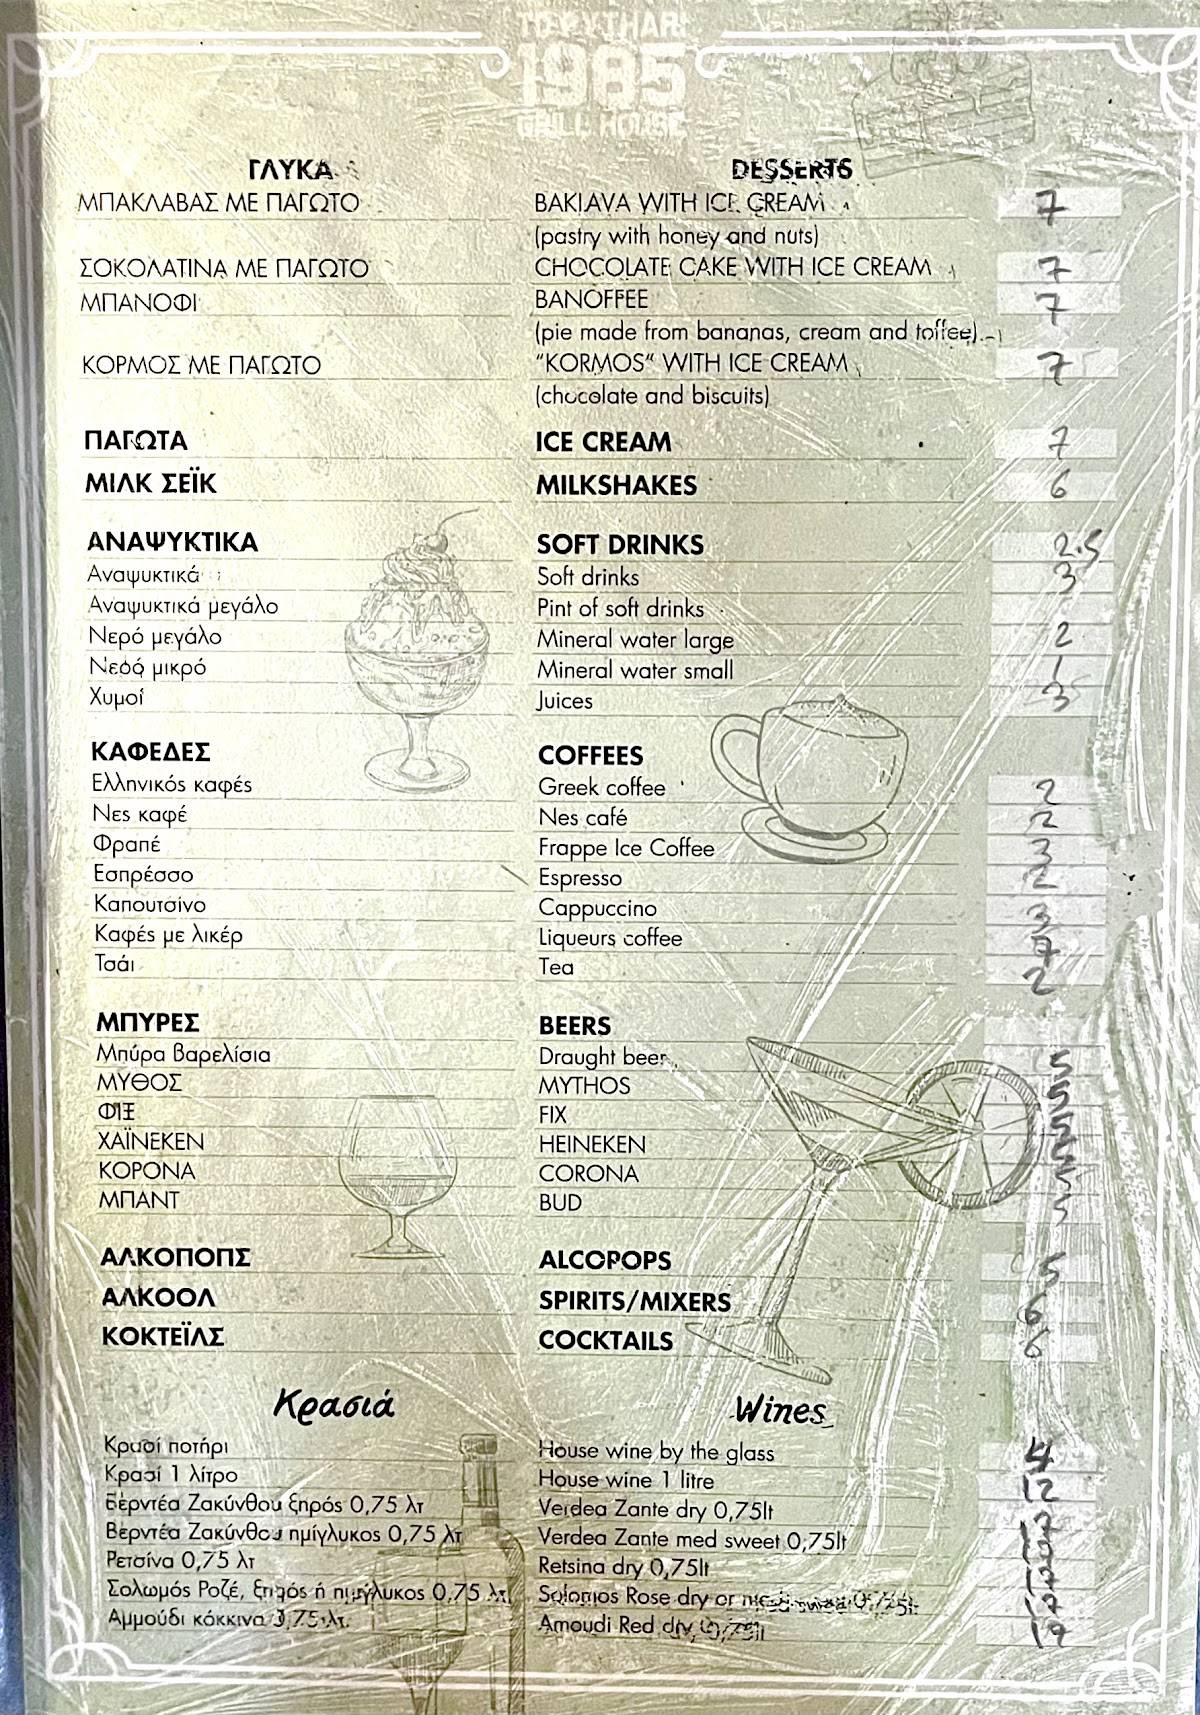 TO PYTHARI
1985
GRILL HOUSE
ΓΛΥΚΑ DESSERTS
ΜΠΑΚΛΑΒΑΣ ΜΕ ΠΑΓΩΤΟ BAKLAVA WITH ICE CREAM 7
(pastry with honey and nuts)
ΣΟΚΟΛΑΤΙΝΑ ΜΕ ΠΑΓΩΤΟ CHOCOLATE CAKE WITH ICE CREAM 7
ΜΠΑΝΟΦΙ BANOFFEE 7
(pie made from bananas, cream and toffee)
ΚΟΡΜΟΣ ΜΕ ΠΑΓΩΤΟ “KORMOS“ WITH ICE CREAM 7
(chocolate and biscuits)
ΠΑΓΩΤΑ ICE CREAM 7
ΜΙΛΚ ΣΕΪΚ MILKSHAKES 6
ΑΝΑΨΥΚΤΙΚΑ SOFT DRINKS 2.5
Αναψυκτικά Soft drinks 3
Αναψυκτικά μεγάλο Pint of soft drinks
Νερό μεγάλο Mineral water large 2
Νερό μικρό Mineral water small 1
Χυμοί Juices 3
ΚΑΦΕΔΕΣ COFFEES
Ελληνικός καφές Greek coffee 2
Νες καφέ Nes café 2
Φραπέ Frappe Ice Coffee 3
Εσπρέσσο Espresso 2
Καπουτσίνο Cappuccino 3
Καφές με λικέρ Liqueurs coffee 7
Τσάι Tea 2
ΜΠΥΡΕΣ BEERS
Μπύρα βαρελίσια Draught beer 5
ΜΥΘΟΣ MYTHOS 5
ΦΙΞ FIX 5
ΧΑΪΝΕΚΕΝ HEINEKEN 5
ΚΟΡΟΝΑ CORONA 5
ΜΠΑΝΤ BUD 5
ΑΛΚΟΠΟΠΣ ALCOPOPS 5
ΑΛΚΟΟΛ SPIRITS/MIXERS 6
ΚΟΚΤΕΪΛΣ COCKTAILS 6
Κρασιά Wines
Κρασί ποτήρι House wine by the glass 4
Κρασί 1 λίτρο House wine 1 litre 12
Βερντέα Ζακύνθου ξηρός 0,75 λτ Verdea Zante dry 0,75lt
Βερντέα Ζακύνθου ημίγλυκος 0,75 λτ Verdea Zante med sweet 0,75lt
Ρετσίνα 0,75 λτ Retsina dry 0,75lt
Σολωμός Ροζέ, ξηρός ή ημίγλυκος 0,75 λτ Solomos Rose dry or med sweet 0,75lt
Αμμούδι κόκκινο 0,75 λτ. Amoudi Red dry 0,75lt